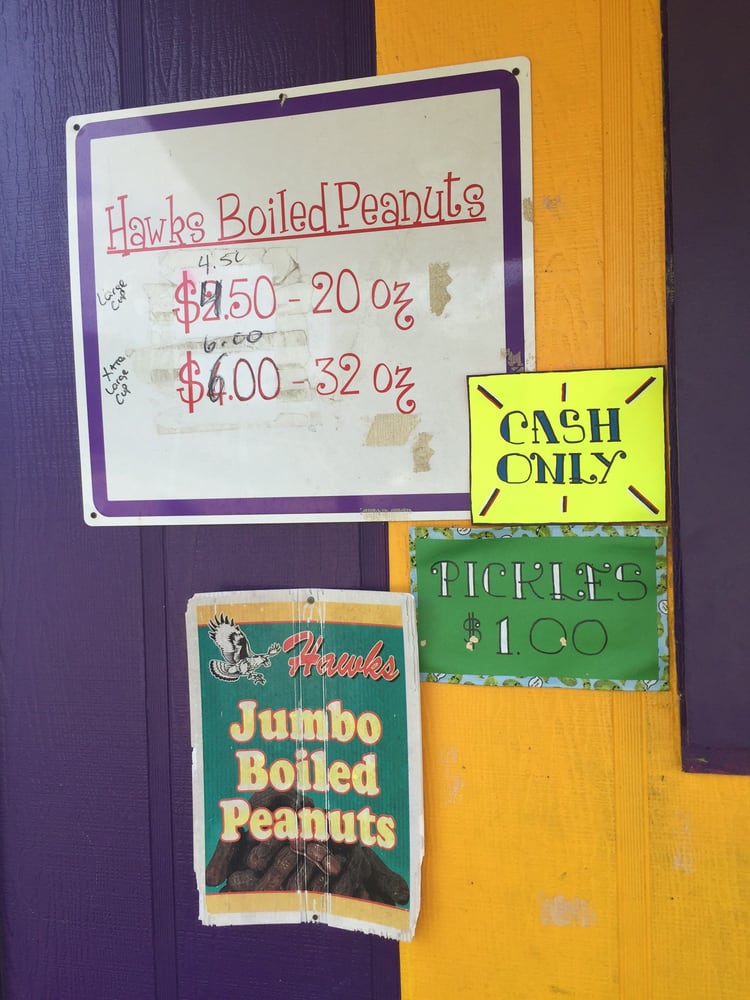 Hawks Boiled Peanuts
4.50
Large Cup
$4.50 - 20 oz
6.00
Xtra Large Cup
$6.00 - 32 oz
CASH
ONLY
PICKLES
$1.00
Hawks
Jumbo
Boiled
Peanuts